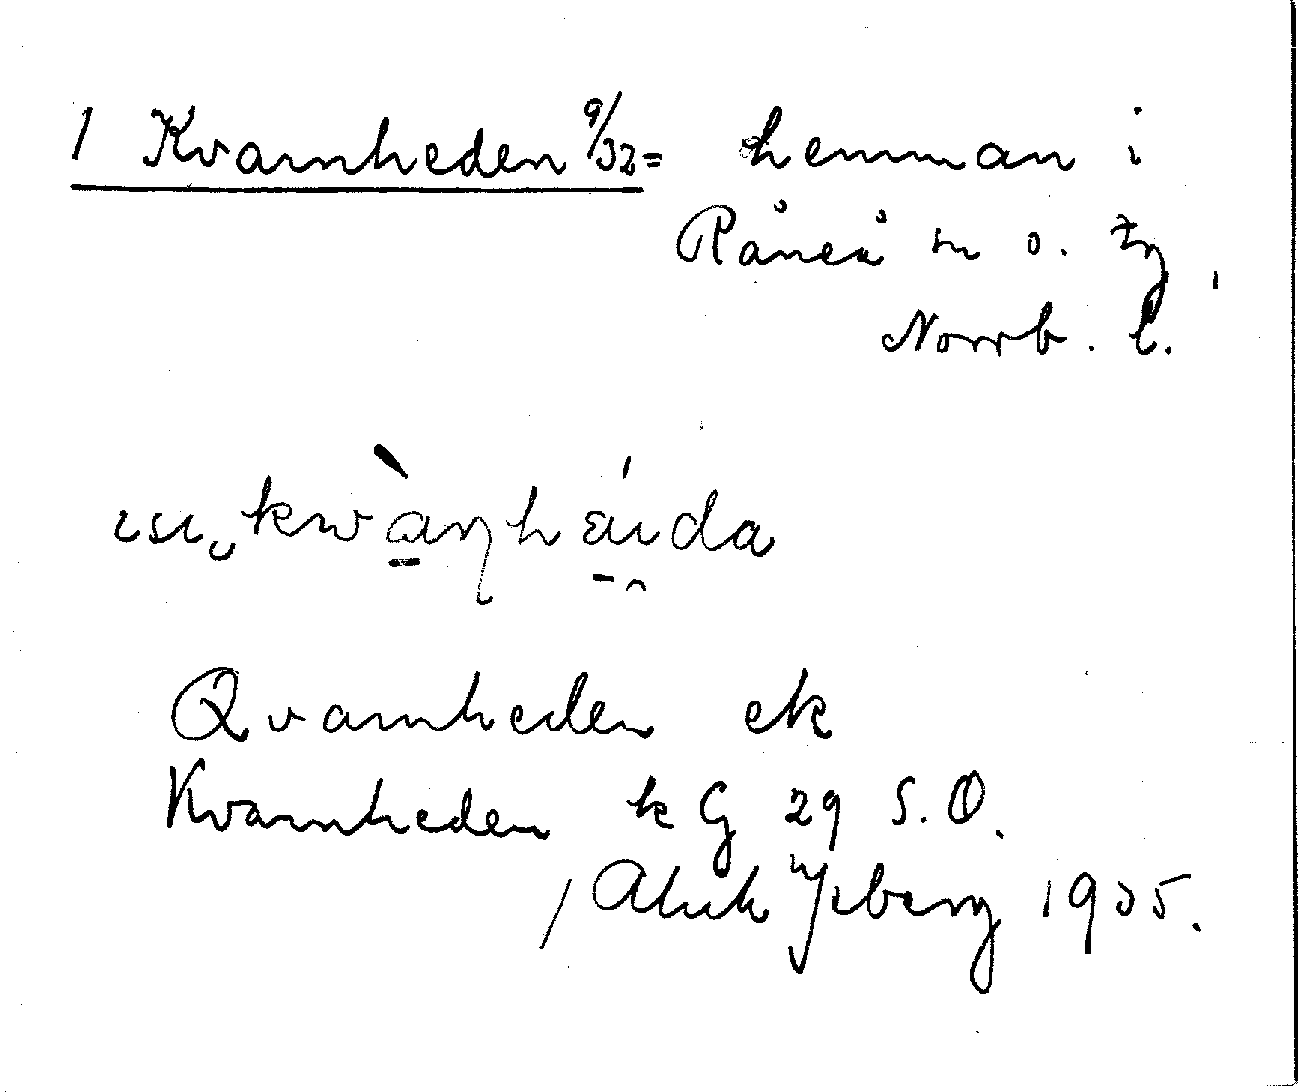 1 Kvarnheden 9/32= hemman i
Råneå sn o. tg,
Norrb. l.
kwàɳháida
Qvarnheden ek
Kvarnheden k G 29 S.O.
/ Isberg 1935.